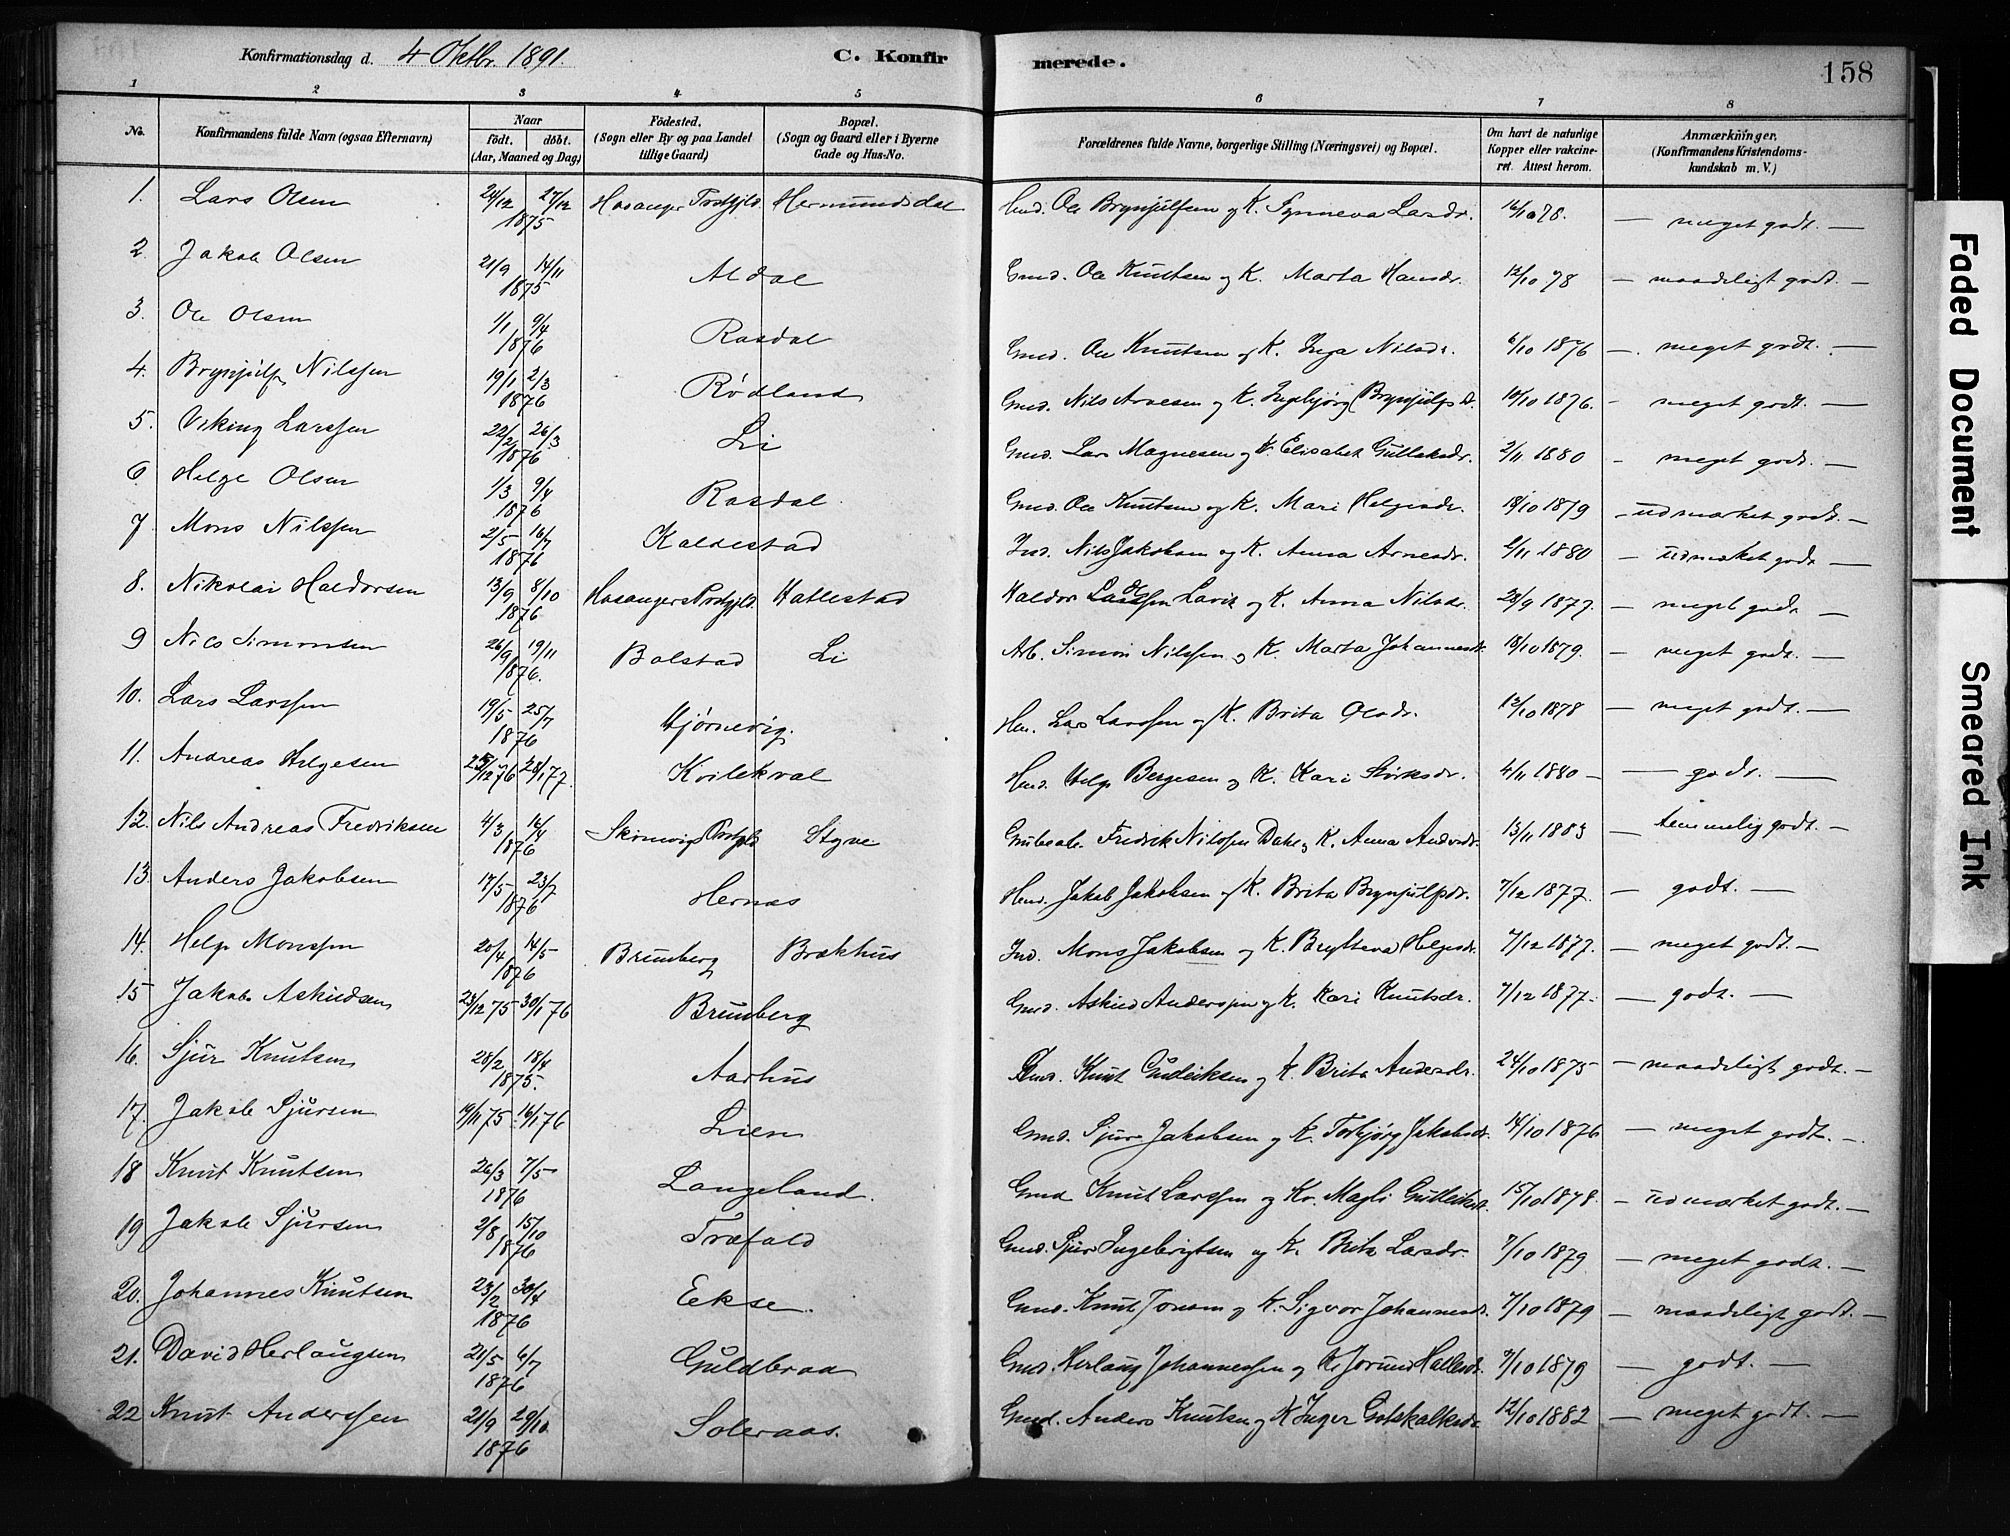 Konfirmationsdag d. 4 Oktbr. 1891.
C. Konfirmerede.
158
1 2 3 4 5 6 7 8
No. Konfirmandens fulde Navn (ogsaa Efternavn) Naar Födt. döbt. (Aar, Maaned og Dag) Födested. (Sogn eller By og paa Landet tillige Gaard) Bopæl. (Sogn og Gaard eller i Byerne Gade og Hus-No. Forældrenes fulde Navne, borgerlige Stilling (Næringsvei) og Bopæl. Om havt de naturlige Kopper eller vakcineret. Attest herom. Anmærkninger. (Konfirmandens Kristendomskundskab m. V.)
1. Lars Olsen 24/12 27/12 1875 Hosanger Prstgjld. Hermundsdal Hmd. Ole Brynjulfsen og K. Synneva Larsdr. 16/10 78. — meget godt. —
2. Jakob Olsen 21/9 14/11 1875 Aldal Gmd. Ole Knutsen og K. Marta Hansdr. 12/10 78 — maadeligt godt. —
3. Ole Olsen 1/1 9/4 1876 Rasdal Gmd. Ole Knutsen og K. Inga Nilsdr. 6/10 1876 — meget godt. —
4. Brynjulf Nilssen 19/1 2/3 1876 Rødland Gmd. Nils Arnesen og K. Ingebjørg Brynjulfsd. 10/10 1876. - meget godt. —
5. Viking Larssen 22/2 26/3 1876 Li Gmd. Lars Magnesen og K. Elisabet Gulleksdr. 2/11 1880 - meget godt. —
6 Helge Olsen 1/3 9/4 1876 Rasdal Gmd. Ole Knutsen og K. Mari Helgesdr. 18/10 1879 - udmærket godt. —
7 Mons Nilssen 2/5 16/7 1876 Kaldestad Ind. Nils Jakobsen og K. Anna Arnesdr. 2/11 1880 — udmærket godt —
8. Nikolai Haldorsen 13/9 8/10 1876 Hosangers Prstgjld. Hallestad Haldor Lavik og K. Anna Nilsdr. 28/9 1877. — meget godt —
9 Nils Simonsen 26/9 19/11 1876. Bolstad Li Arb. Simon Nilssen og K. Marta Johannesdr. 18/10 1879. — meget godt. —
10. Lars Larssen 19/5 25/7 1876 Hjørnevig. Hm. Lars Larssen og K. Brita Olsdr. 12/10 1878 — meget godt. —
11. Andreas Helgesen 25/12 76 28/1 77. Kvilekval Hmd. Helge Bergesen og K. Kari Störksdr. 4/11 1880 — godt. —
12. Nils Andreas Fredriksen 4/3 16/4 1876 Prstgjld Styve Fredrik Nilssen Dale og K. Anna Andersdr. 13/11 1883 — temmelig godt. —
13. Anders Jakobsen 17/5 23/7 1876 Hernæs Hmd. Jakob Jakobsen og K. Brita Brynjulfsdr. 7/12 1877. — godt. —
14. Helge Monssen 20/4 14/5 1876 Brunberg Brækhus Ind. Mons Jakobsen og K. Helgesdr. 7/12 1877. — meget godt. —
15 Jakob Askildsen 23/12 75 30/1 76 Brunberg Gmd. Askild Anderssen og K. Kari Knutsdr. 7/12 1877. — godt. —
16. Sjur Knutsen 28/2 18/4 1875. Aarhus Gmd. Knut Gudleiksen og K. Brita Andersdr. 24/10 1875 — maadeligt godt. —
17. Jakob Sjursen 19/11 75. 16/1 76 Lien Gmd. Sjur Jakobsen og K. Torbjørg Jakobsdr. 14/10 1876 — meget godt. —
18 Knut Knutsen 26/3 7/5 1876 Langeland. Gmd Knut Larssen og K. Magli Gulleiksdr. 15/10 1878. — udmærket godt. —
19 Jakob Sjursen 2/8 15/10 1876 Træfald Gmd. Sjur Ingebrigtsen og K. Brita Larsdr. 7/10 1879 — meget godt. —
20. Johannes Knutsen 23/2 30/4 1876 Ekse. Gmd. Knut Jonsen og K. Sigvor Johannesdr. 7/10 1879 — maadeligt godt. —
21. David Herlaugsen 21/5 6/7 1876 Guldbraa Gmd. Herlaug Johannessen og K. Jorund Hallesdr. 9/10 1879 — godt. —
22 Knut Anderssen 21/9 29/10 1876 Soleraas. Gmd. Anders Knutsen og K Inger Gotskalksdr 12/10 1882 — meget godt. —
Faded Document
Smeared Ink